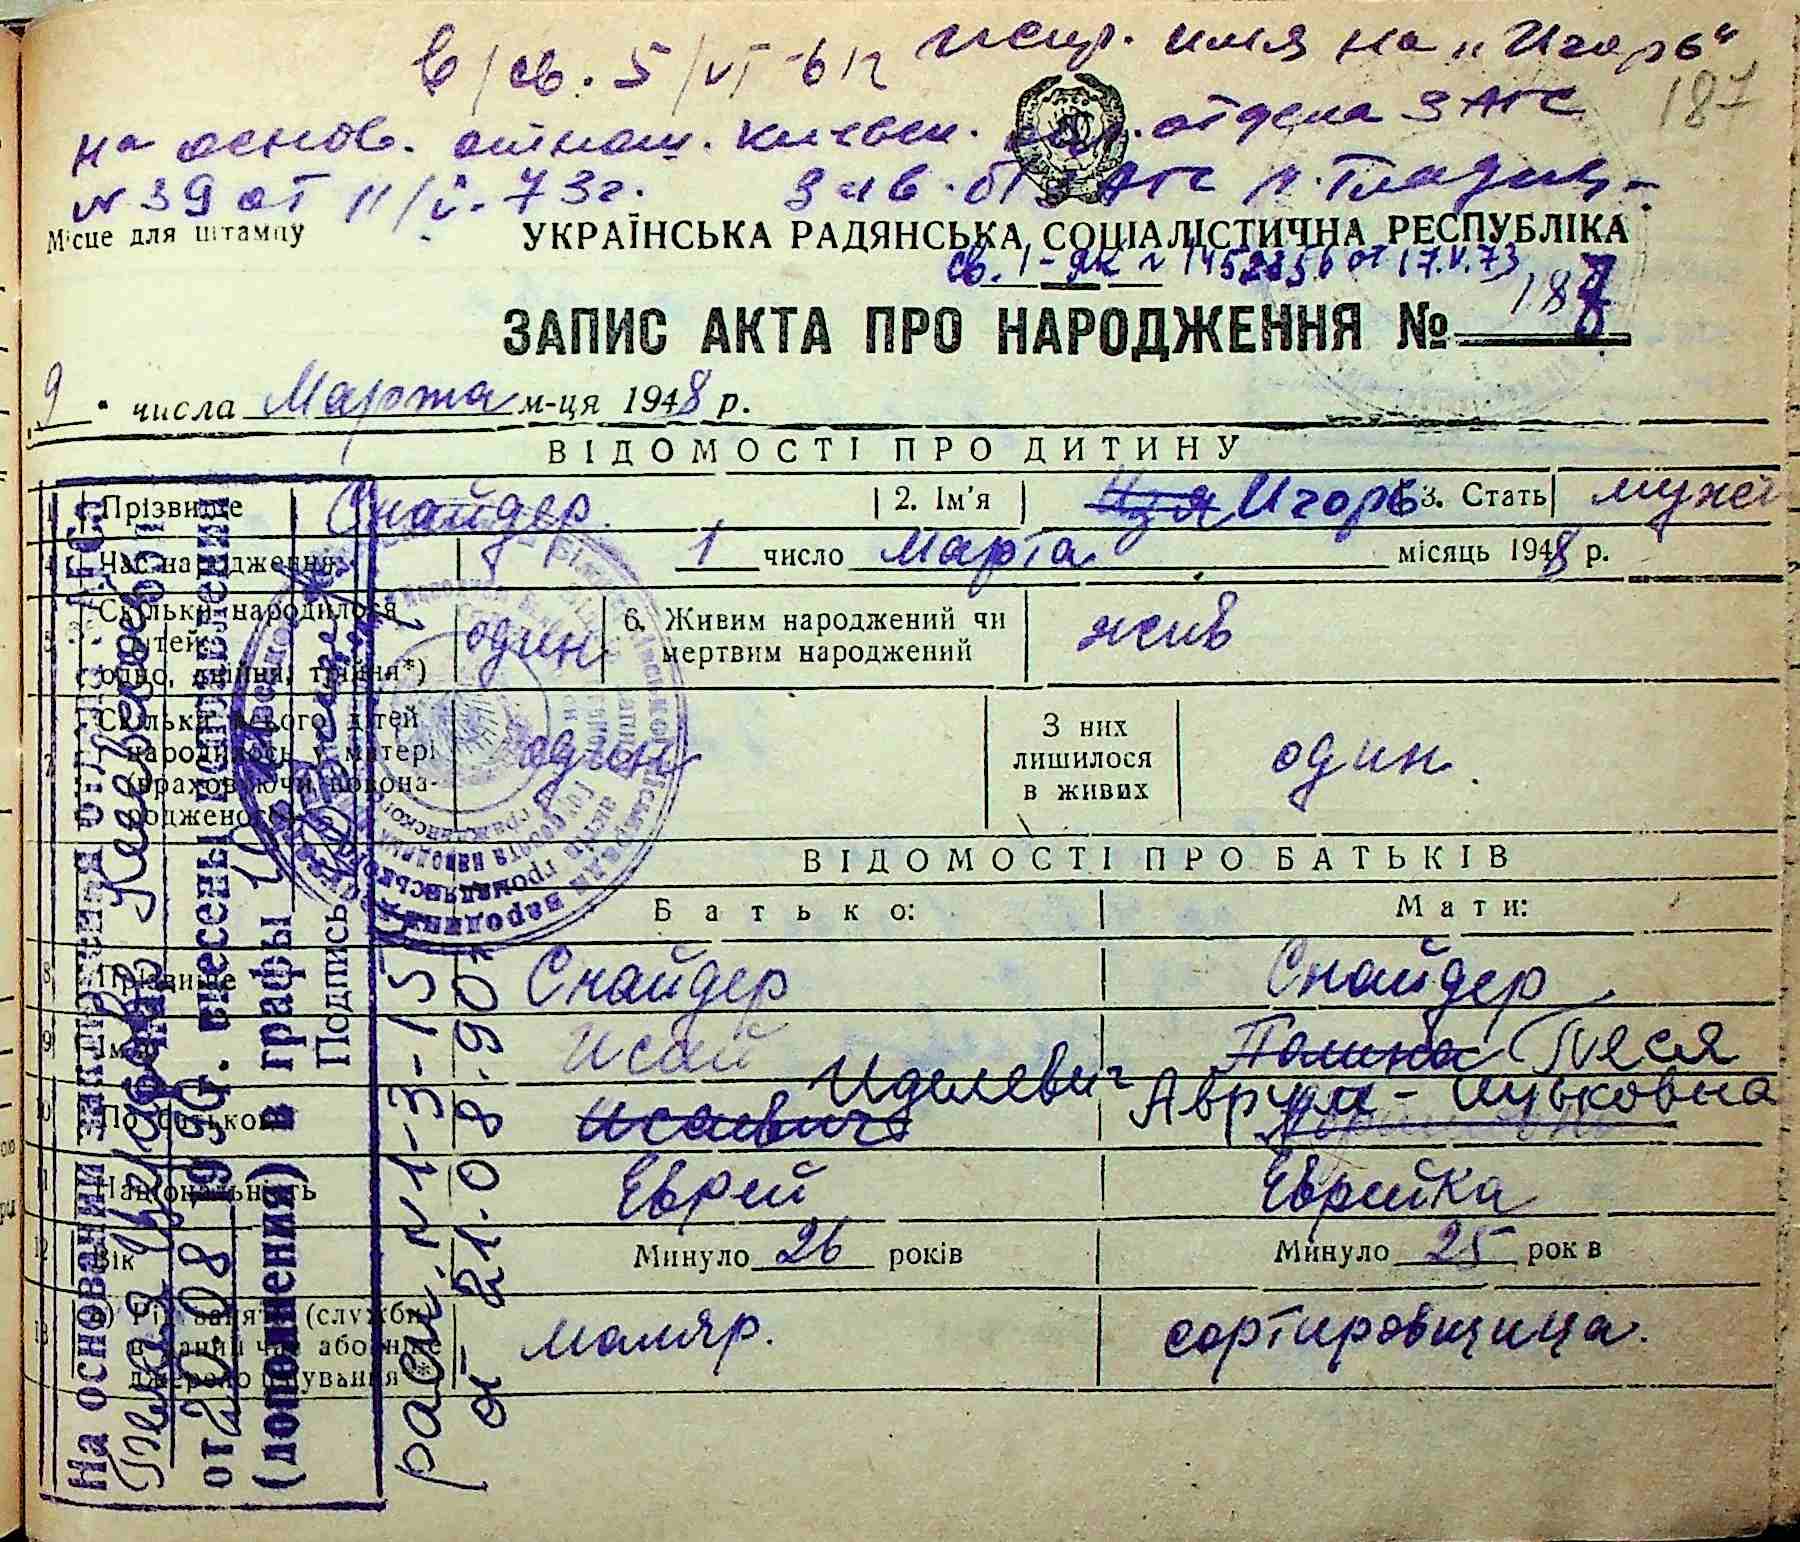 в/св. 5/VI-61г испр. имя на "Игорь"
187
на основ. отнош. киевск. отдела ЗАГС
№39 от 11/V-73г. Зав. ЗАГС
Місце для штампу
УКРАЇНСЬКА РАДЯНСЬКА СОЦІАЛІСТИЧНА РЕСПУБЛІКА
от 17.V.73
ЗАПИС АКТА ПРО НАРОДЖЕННЯ № 187
9 " числа Марта м-ця 1948 р.
ВІДОМОСТІ ПРО ДИТИНУ
1 Прізвище Снайдер. 2. Ім'я Изя Игорь 3. Стать мужск
4 Час народження 1 число Марта місяць 1948 р.
5 Скільки народилося дітей: один 6. Живим народжений чи жив
одно, двійня, трійня*) мертвим народжений
7 Скільки всього дітей З них
народилось у матері один лишилося один.
(враховуючи новона- в живих
родженого)
ВІДОМОСТІ ПРО БАТЬКІВ
Батько: Мати:
8 Прізвище Снайдер Снайдер
9 Ім'я Исай Полина Песя
10 По батькові Исаевич Иделевич Аврум-Ицьковна
11 Національність Еврей Еврейка
12 Вік Минуло 26 років Минуло 25 років
13 а) Рід занять (служби) маляр. сортировщица.
в даний час або інше
джерело існування
На основании заключения отдела ЗАГСа
от 20.08 1990г. внесены исправления
(дополнения) в графы
Подпись
расп. №1-3-15
от 21.08.90г